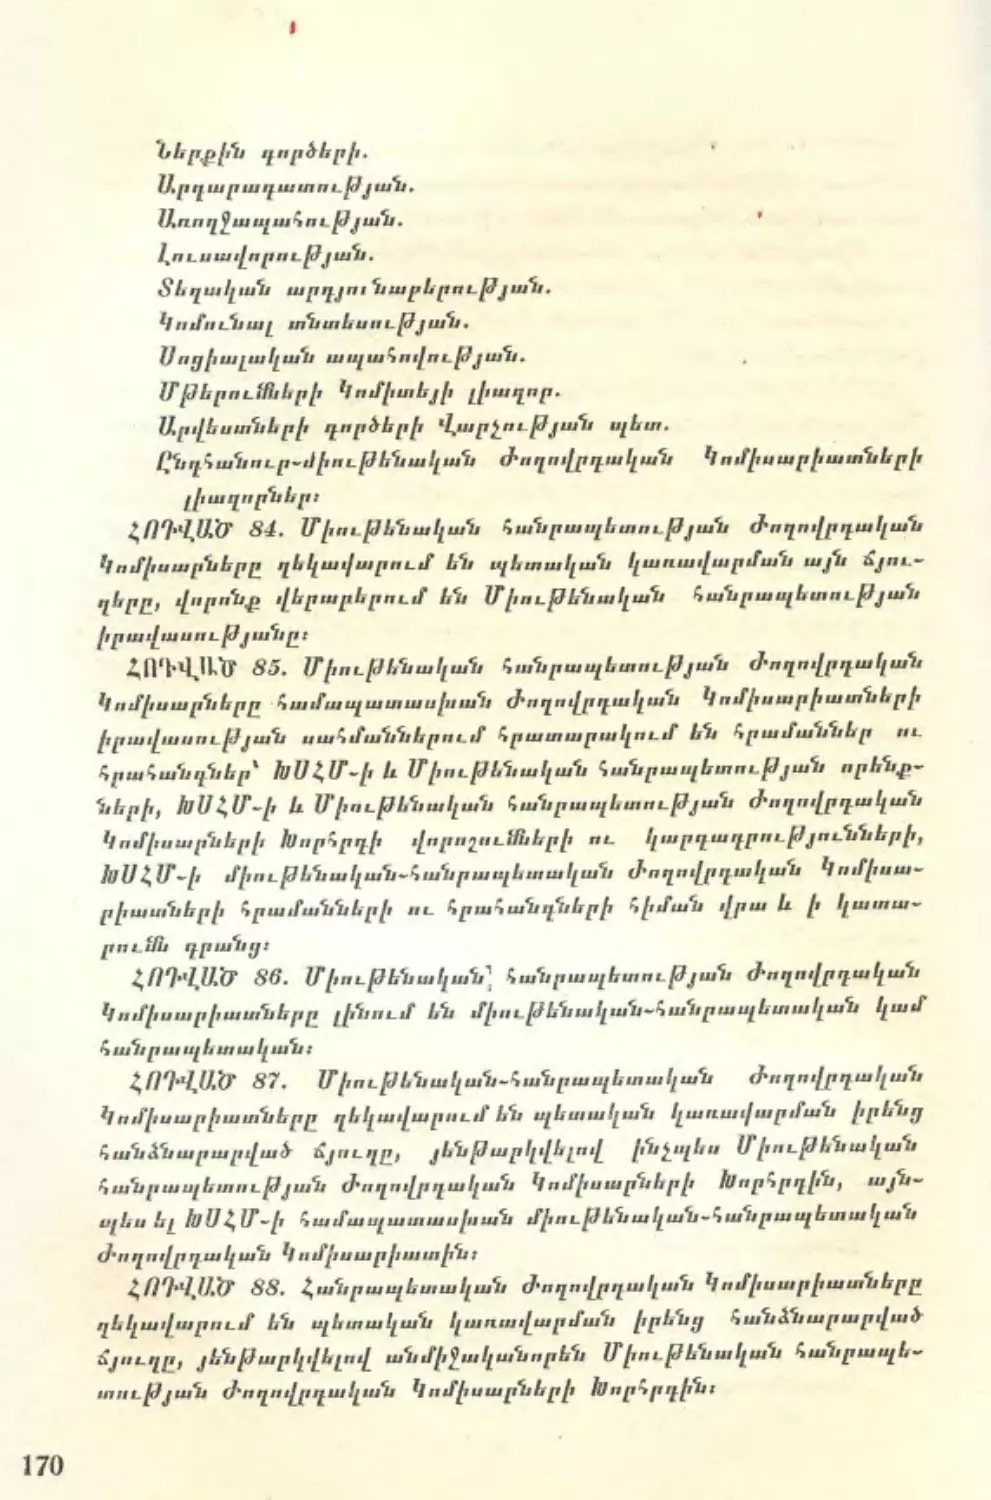 Ներքին գործերի.
Արդարադատության.
Առողջապահության.
Լուսավորության.
Տեղական արդյունաբերության.
Կոմունալ տնտեսության.
Սոցիալական ապահովության.
Մթերումների Կոմիտեյի լիազոր.
Արվեստների գործերի Վարչության պետ.
Ընդհանուր-միութենական Ժողովրդական Կոմիսարիատների
լիազորներ։
ՀՈԴՎԱԾ 84. Միութենական հանրապետության Ժողովրդական
Կոմիսարները ղեկավարում են պետական կառավարման այն ճյու-
ղերը, վորոնք վերաբերում են Միութենական հանրապետության
իրավասությանը։
ՀՈԴՎԱԾ 85. Միութենական հանրապետության Ժողովրդական
Կոմիսարները համապատասխան Ժողովրդական Կոմիսարիատների
իրավասության սահմաններում հրատարակում են հրամաններ ու
հրահանգներ՝ ԽՍՀՄ-ի և Միութենական հանրապետության որենք-
ների, ԽՍՀՄ-ի և Միութենական հանրապետության Ժողովրդական
Կոմիսարների Խորհրդի վորոշումների ու կարգադրությունների,
ԽՍՀՄ-ի միութենական-հանրապետական Ժողովրդական Կոմիսա-
րիատների հրամանների ու հրահանգների հիման վրա և ի կատա-
րումն դրանց։
ՀՈԴՎԱԾ 86. Միութենական հանրապետության Ժողովրդական
Կոմիսարիատները լինում են միութենական-հանրապետական կամ
հանրապետական։
ՀՈԴՎԱԾ 87. Միութենական-հանրապետական Ժողովրդական
Կոմիսարիատները ղեկավարում են պետական կառավարման իրենց
հանձնարարված ճյուղը, յենթարկվելով ինչպես Միութենական
հանրապետության Ժողովրդական Կոմիսարների Խորհրդին, այն-
պես ել ԽՍՀՄ-ի համապատասխան միութենական-հանրապետական
Ժողովրդական Կոմիսարիատին։
ՀՈԴՎԱԾ 88. Հանրապետական Ժողովրդական Կոմիսարիատները
ղեկավարում են պետական կառավարման իրենց հանձնարարված
ճյուղը, յենթարկվելով անմիջականորեն Միութենական հանրապե-
տության Ժողովրդական Կոմիսարների Խորհրդին։
170